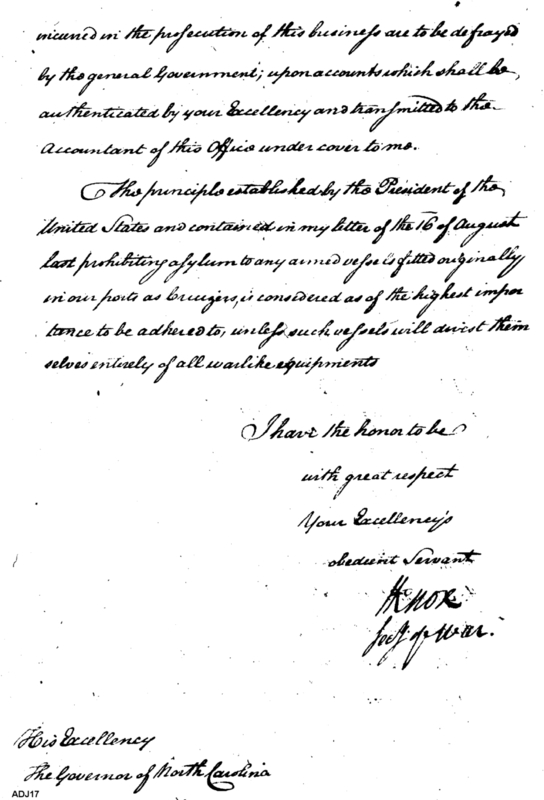 incurred in the prosecution of this business are to be defrayed
by the general Government; upon accounts which shall be,
authenticated by your Excellency and transmitted to the
Accountant of this Office under cover to me.
The principle established by the President of the
United States and contained in my letter of the 16 of August
last prohibiting asylum to any armed vessels fitted originally
in our ports as Cruizers, is considered as of the highest impor
tance to be adhered to, unless such vessels will divest them
selves entirely of all warlike equipments
I have the honor to be
with great respect
Your Excellency's
obedient Servant
HKnox
Secy of War.
His Excellency
The Governor of North Carolina
ADJ17